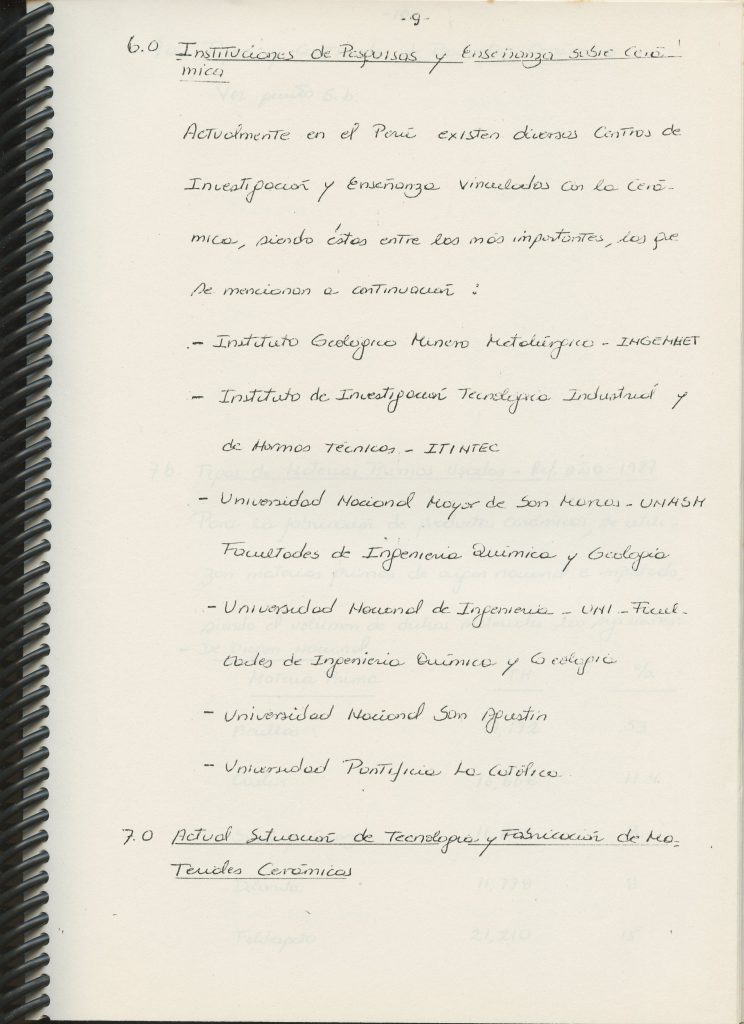 -9-
6.0 Instituciones de Pesquisas y Enseñanza sobre Cerá-
mica
Actualmente en el Perú existen diversos Centros de
Investigación y Enseñanza vinculados con la Cerá-
mica, siendo éstos entre los más importantes, los que
se mencionan a continuación :
- Instituto Geológico Minero Metalúrgico - INGEMMET
- Instituto de Investigación Tecnológica Industrial y
de Normas Técnicas - ITINTEC
- Universidad Nacional Mayor de San Marcos - UNMSM
Facultades de Ingeniería Química y Geología
- Universidad Nacional de Ingeniería - UNI - Facul-
tades de Ingeniería Química y Geología
- Universidad Nacional San Agustín
- Universidad Pontificia La Católica
7.0 Actual Situación de Tecnología y Fabricación de Ma-
teriales Cerámicos